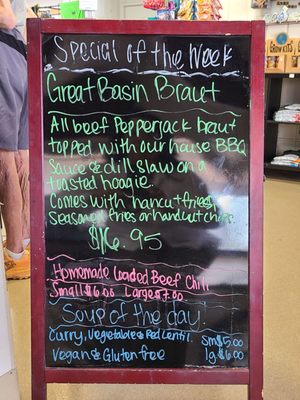 Special of the Week
Great Basin Braut
All beef Pepperjack braut
topped with our house BBQ
Sauce & dill slaw on a
toasted hoagie.
Comes with hancut fries,
Seasoned fries or handcut chips.
$16.95
Homemade Loaded Beef Chili
Small $6.00 Large $7.00
Soup of the day!
Curry, Vegetable & Red Lentil. Sm $5.00
Vegan & Gluten free lg $6.00
GROW KITS